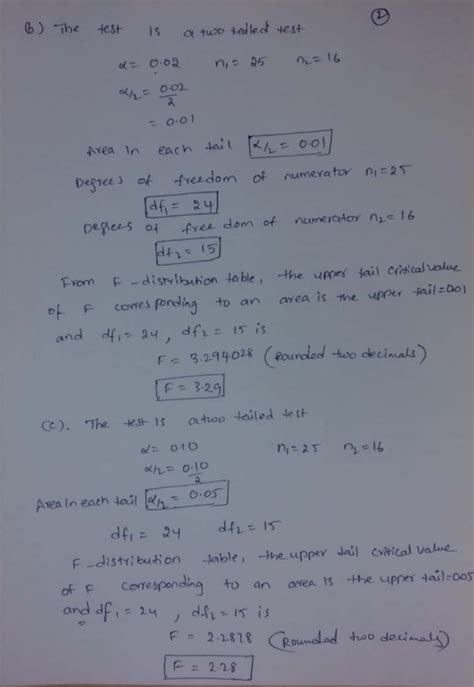 ②
b) The test is a two tailed test
α = 0.02 n₁ = 25 n₂ = 16
α/2 = 0.02/2
= 0.01
Area in each tail α/2 = 0.01
Degrees of freedom of numerator n₁ = 25
df₁ = 24
Degrees of free dom of numerator n₂ = 16
df₂ = 15
From F-distribution table, the upper tail critical value
of F corresponding to an area is the upper tail = 0.01
and df₁ = 24, df₂ = 15 is
F = 3.294028 (rounded two decimals)
F = 3.29
(c). The test is a two tailed test
α = 0.10 n₁ = 25 n₂ = 16
α/2 = 0.10/2
Area in each tail α/2 = 0.05
df₁ = 24 df₂ = 15
F-distribution table, the upper tail critical value
of F corresponding to an area is the upper tail = 0.05
and df₁ = 24, df₂ = 15 is
F = 2.2878 (Rounded two decimals)
F = 2.28